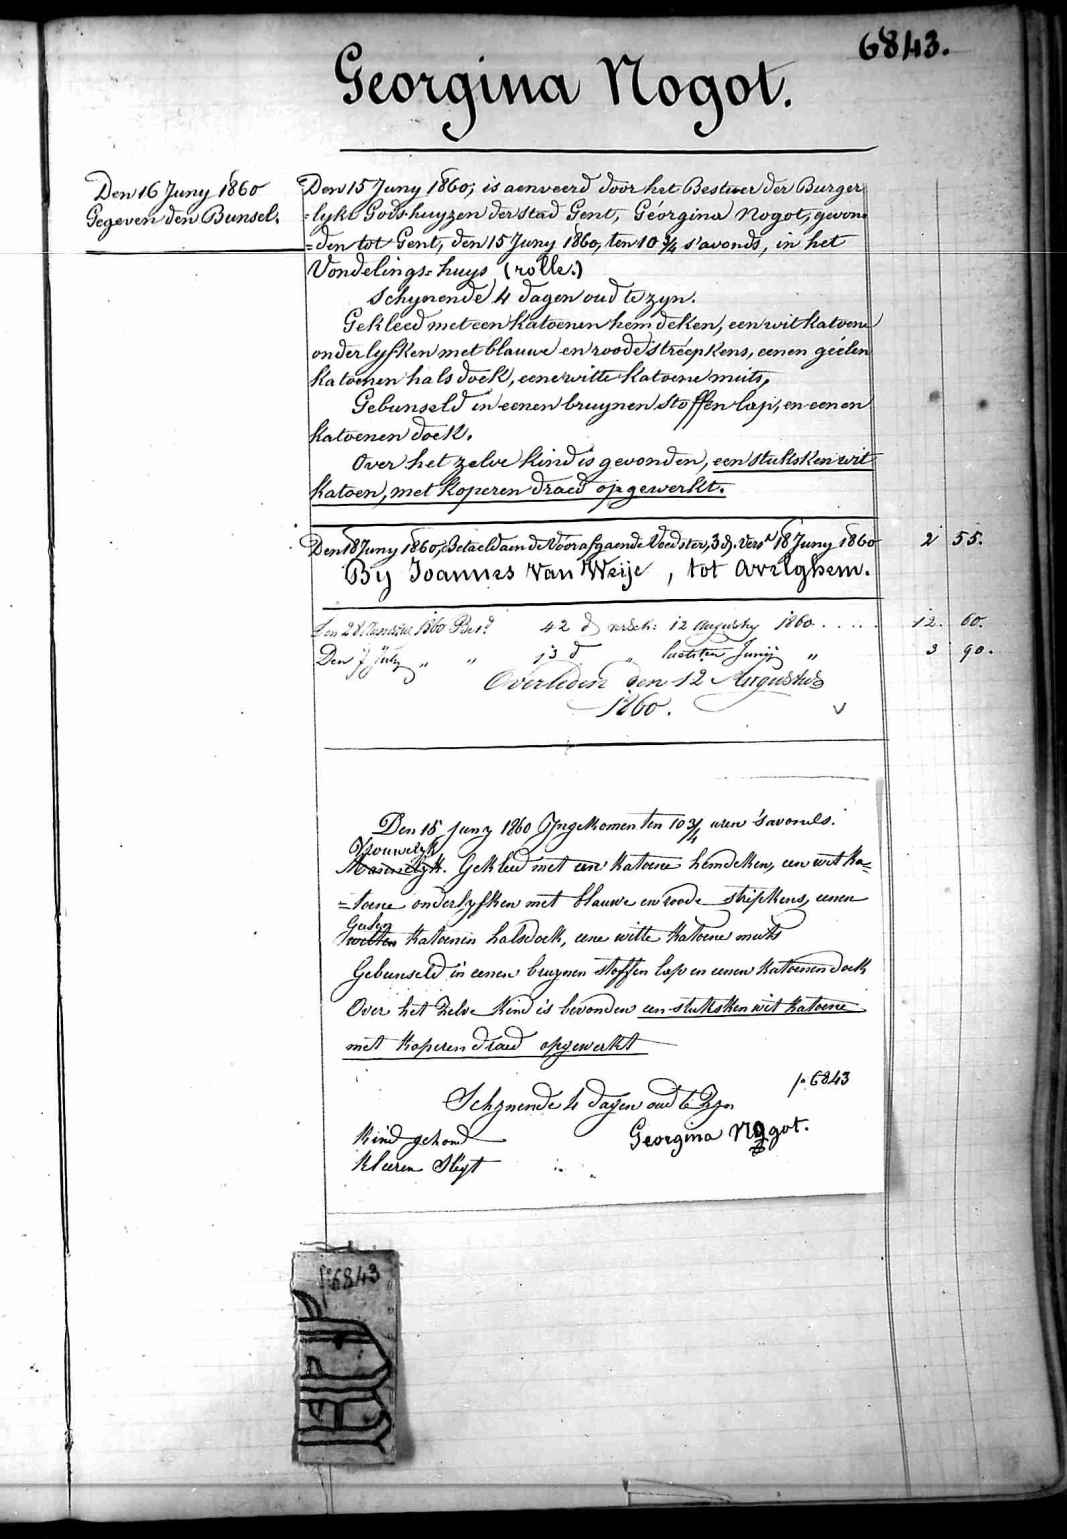 6843.
Georgina Nogot.
Den 16 Juny 1860
Gegeven den Bunsel.
Den 15 Juny 1860, is aenveerd door het Bestuer der Burger
=lyke Godshuyzen der stad Gent, Géorgina Nogot, gevon
=den tot Gent, den 15 Juny 1860, ten 10 3/4 s'avonds, in het
Vondelings=huys (rolle.)
Schynende 4 dagen oud te zyn.
Gekleed met een katoenen hemdeken, een wit katoene
onderlyfken met blauwe en roode streepkens, eenen géelen
katoenen halsdoek, eene witte katoene muts,
Gebunseld in eenen bruynen stoffen lap, en eenen
katoenen doek.
Over het zelve kind is gevonden, een stuksken wit
katoen, met koperen draed opgewerkt.
Den 18 Juny 1860, Betaeld aen de Voorafgaende Voedster, 3 d. Versn 18 Juny 1860 2 55.
By Joannes Van Weije, tot Avelghem.
Den 28 1860 42 d 12 Augusty 1860 . . . . . 12. 60.
Den 7 July " " 13 d " laetsten Junij " 3 90.
Overleden den 12 Augustus
1860. v
Den 15 juny 1860 Yngekomen ten 10 3/4 uren 's avonds.
Vrouwelyk
Mannelyk. Gekleed met een katoene hemdeken, een wit ka=
=toene onderlyfken met blauwe en roode stripkens, eenen
Geelen
witten katoenen halsdoek, eene witte katoene muts
Gebunseld in eenen bruynen stoffen lap en eenen katoenen doek
Over het zelve kind is bevonden een stuksken wit katoene
met koperen draed opgewerkt
Schynende 4 dagen oud te zyn
f° 6843
Georgina Nogot.
Kind gezond
Kleeren Slegt
f° 6843